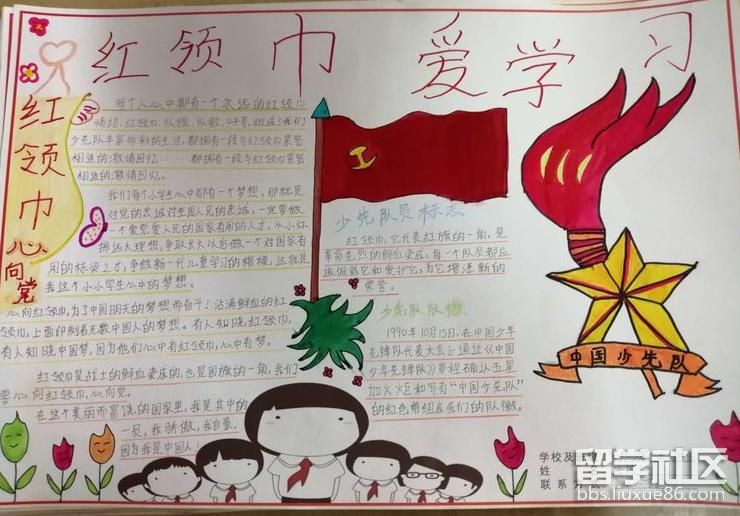 红领巾 爱学习
红领巾心向党
每个人心中都有一个永远的红领巾
情结,红领巾、队旗、队歌、呼号,组成了我们
少先队丰富多彩的生活,都拥有一段与红领巾紧密
相连的激情回忆……都拥有一段与红领巾紧密
相连的激情回忆。
我们每个小学生心中都有一个梦想,那就是
对党的忠诚对祖国人民的忠诚,一定要做
一个爱党爱人民的国家有用的人才,从小怀
揣远大理想,争取长大以后做一个对国家有
用的栋梁之才,争做新一代儿童学习的楷模,这就是
我这个小小学生心中的梦想。
心向红领巾,为了中国明天的梦想而奋斗!沾满鲜血的红
领巾,上面印刻着无数中国人的梦想。有人知晓红领巾,
有人知晓中国梦,因为他们心中有红领巾,心中有梦。
红领巾是战士的鲜血染成的,也是国旗的一角,我们
要心向红领巾,心向党。
在这个美丽而富饶的国家里,我是其中的
一员,我骄傲,我自豪,
因为我是中国人!
少先队员标志
红领巾,它代表红旗的一角,是
革命先烈的鲜血染成,每一个队员都应
该佩戴它和爱护它,为它增添新的
荣誉。
少先队队徽
1990年10月15日,在中国少年
先锋队代表大会上通过《中国
少年先锋队》章程确认五星
加火炬和写有“中国少先队”
的红色带组成我们的队徽。
中国少先队
学校及
姓
联系方式
留学社区
bbs.liuxue86.com